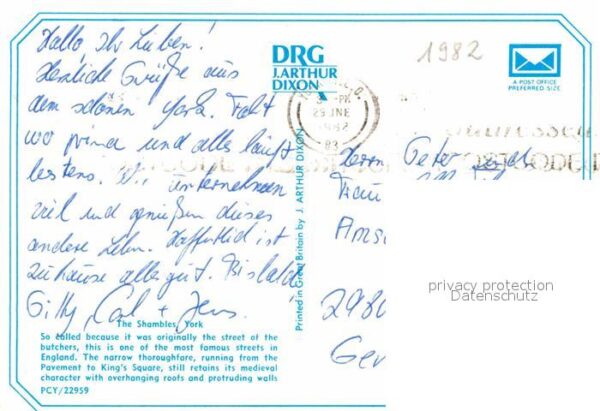 Hallo, Ihr Lieben!
Herzliche Grüße aus
dem schönen York. Fahrt
wo prima und alles läuft
bestens. Wir unternehmen
viel und genießen dieses
andere Leben. Hoffentlich ist
zuhause alles gut. Bis bald
Gilly, Carl + Jens
The Shambles, York
So called because it was originally the street of the
butchers, this is one of the most famous streets in
England. The narrow thoroughfare, running from the
Pavement to King's Square, still retains its medieval
character with overhanging roofs and protruding walls
PCY/22959
DRG
J. ARTHUR
DIXON
Printed in Great Britain by J. ARTHUR DIXON
1982
A POST OFFICE
PREFERRED SIZE
-PM
29 JNE
1982
Herrn Peter
Frau
Ams
2980
Ger
privacy protection
Datenschutz